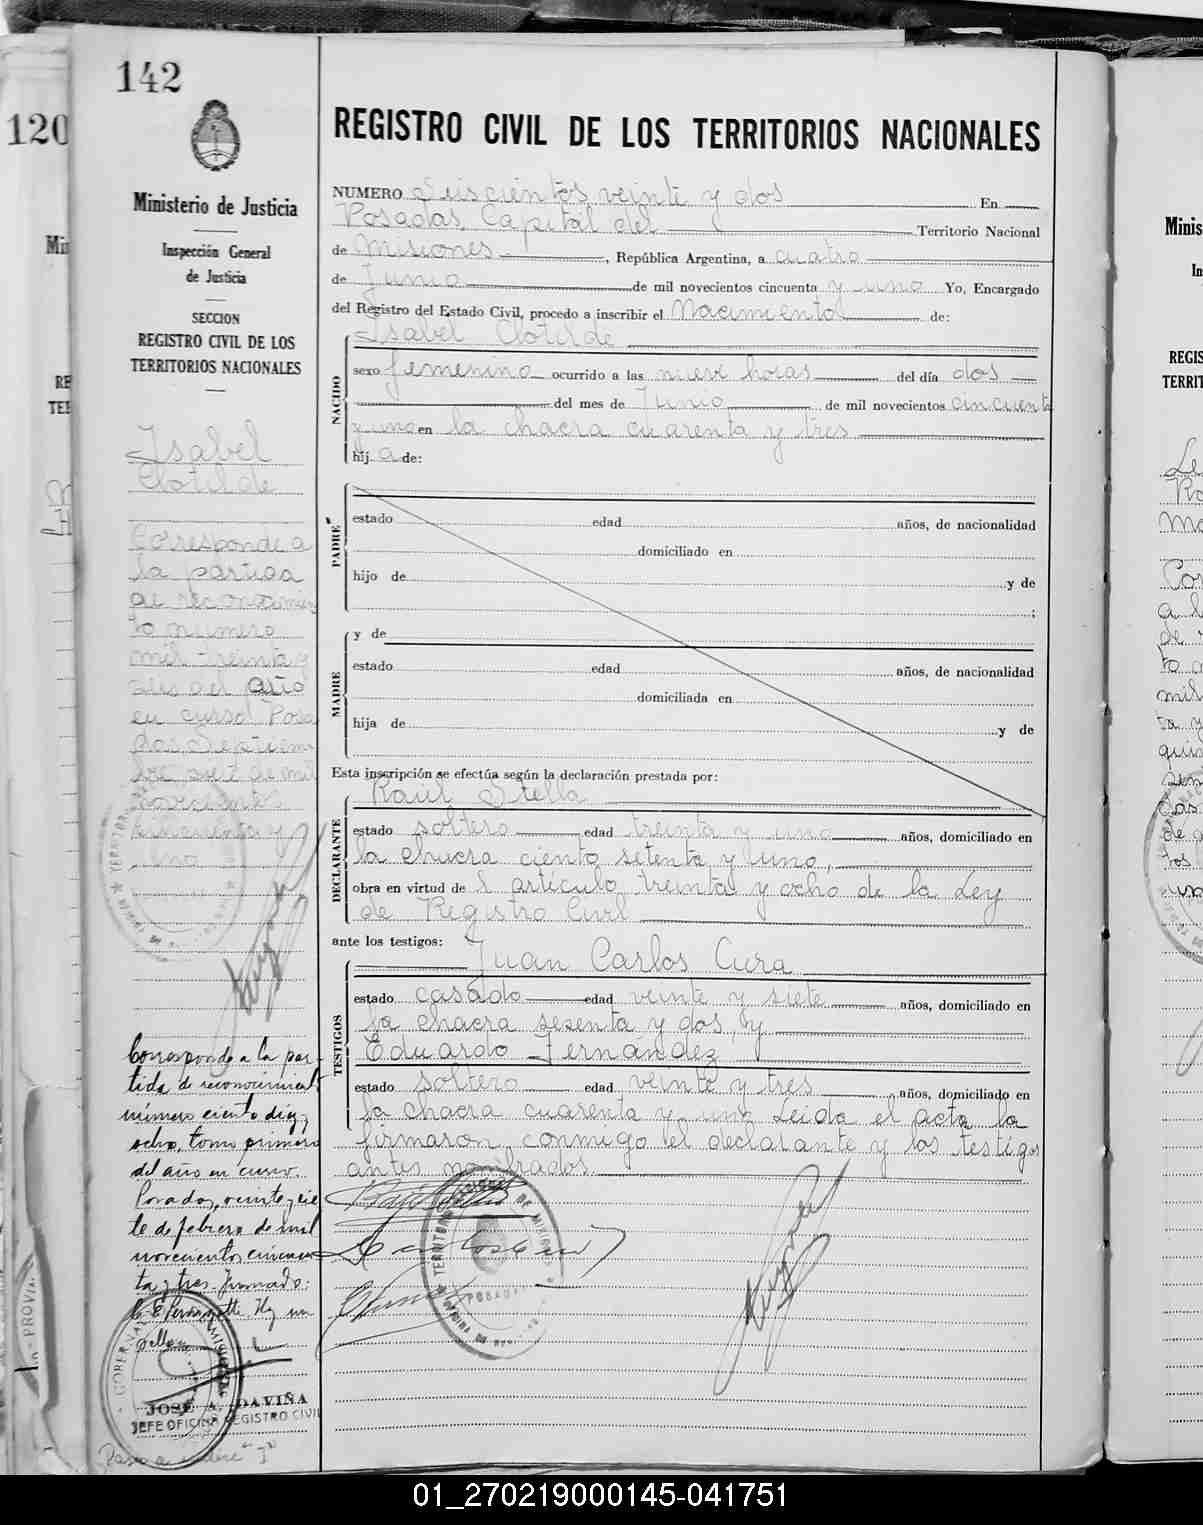 142
120
Ministerio de Justicia
Inspección General
de Justicia
SECCION
REGISTRO CIVIL DE LOS
TERRITORIOS NACIONALES
Isabel
Clotilde
Corresponde a
la partida
de reconocimien
to numero
mil treinta y
seis del año
en curso Posa
das, Septiem
bre siete de mil
novecientos
cincuenta y
uno
Corresponde a la par-
tida de reconocimiento
número ciento diez y
ocho, tomo primero
del año en curso.
Posadas, veinte y sie
te de febrero de mil
novecientos cincuen
ta y tres. Firmado:
Hay un
sello
JOSÉ A. DAVIÑA
JEFE OFICINA REGISTRO CIVIL
Pasa a "I"
REGISTRO CIVIL DE LOS TERRITORIOS NACIONALES
NUMERO Seiscientos veinte y dos En
Posadas, Capital del Territorio Nacional
de Misiones, República Argentina, a cuatro
de Junio de mil novecientos cincuenta y uno Yo, Encargado
del Registro del Estado Civil, procedo a inscribir el Nacimiento de:
NACIDO
Isabel Clotilde
sexo femenino ocurrido a las nueve horas del día dos
del mes de Junio de mil novecientos cincuenta
y uno en la chacra cuarenta y tres
hija de:
PADRE
estado edad años, de nacionalidad
domiciliado en
hijo de y de
;
MADRE
y de
estado edad años, de nacionalidad
domiciliada en
hija de y de
Esta inscripción se efectúa según la declaración prestada por:
DECLARANTE
Raúl Stella
estado soltero edad treinta y uno años, domiciliado en
la chacra ciento setenta y uno,
obra en virtud del artículo treinta y ocho de la Ley
de Registro Civil
ante los testigos:
Juan Carlos Cura
TESTIGOS
estado casado edad veinte y siete años, domiciliado en
la chacra sesenta y dos, y
Eduardo Fernández
estado soltero edad veinte y tres años, domiciliado en
la chacra cuarenta y uno Leida el acta la
firmaron conmigo el declarante y los testigos
antes nombrados.
01_270219000145-041751